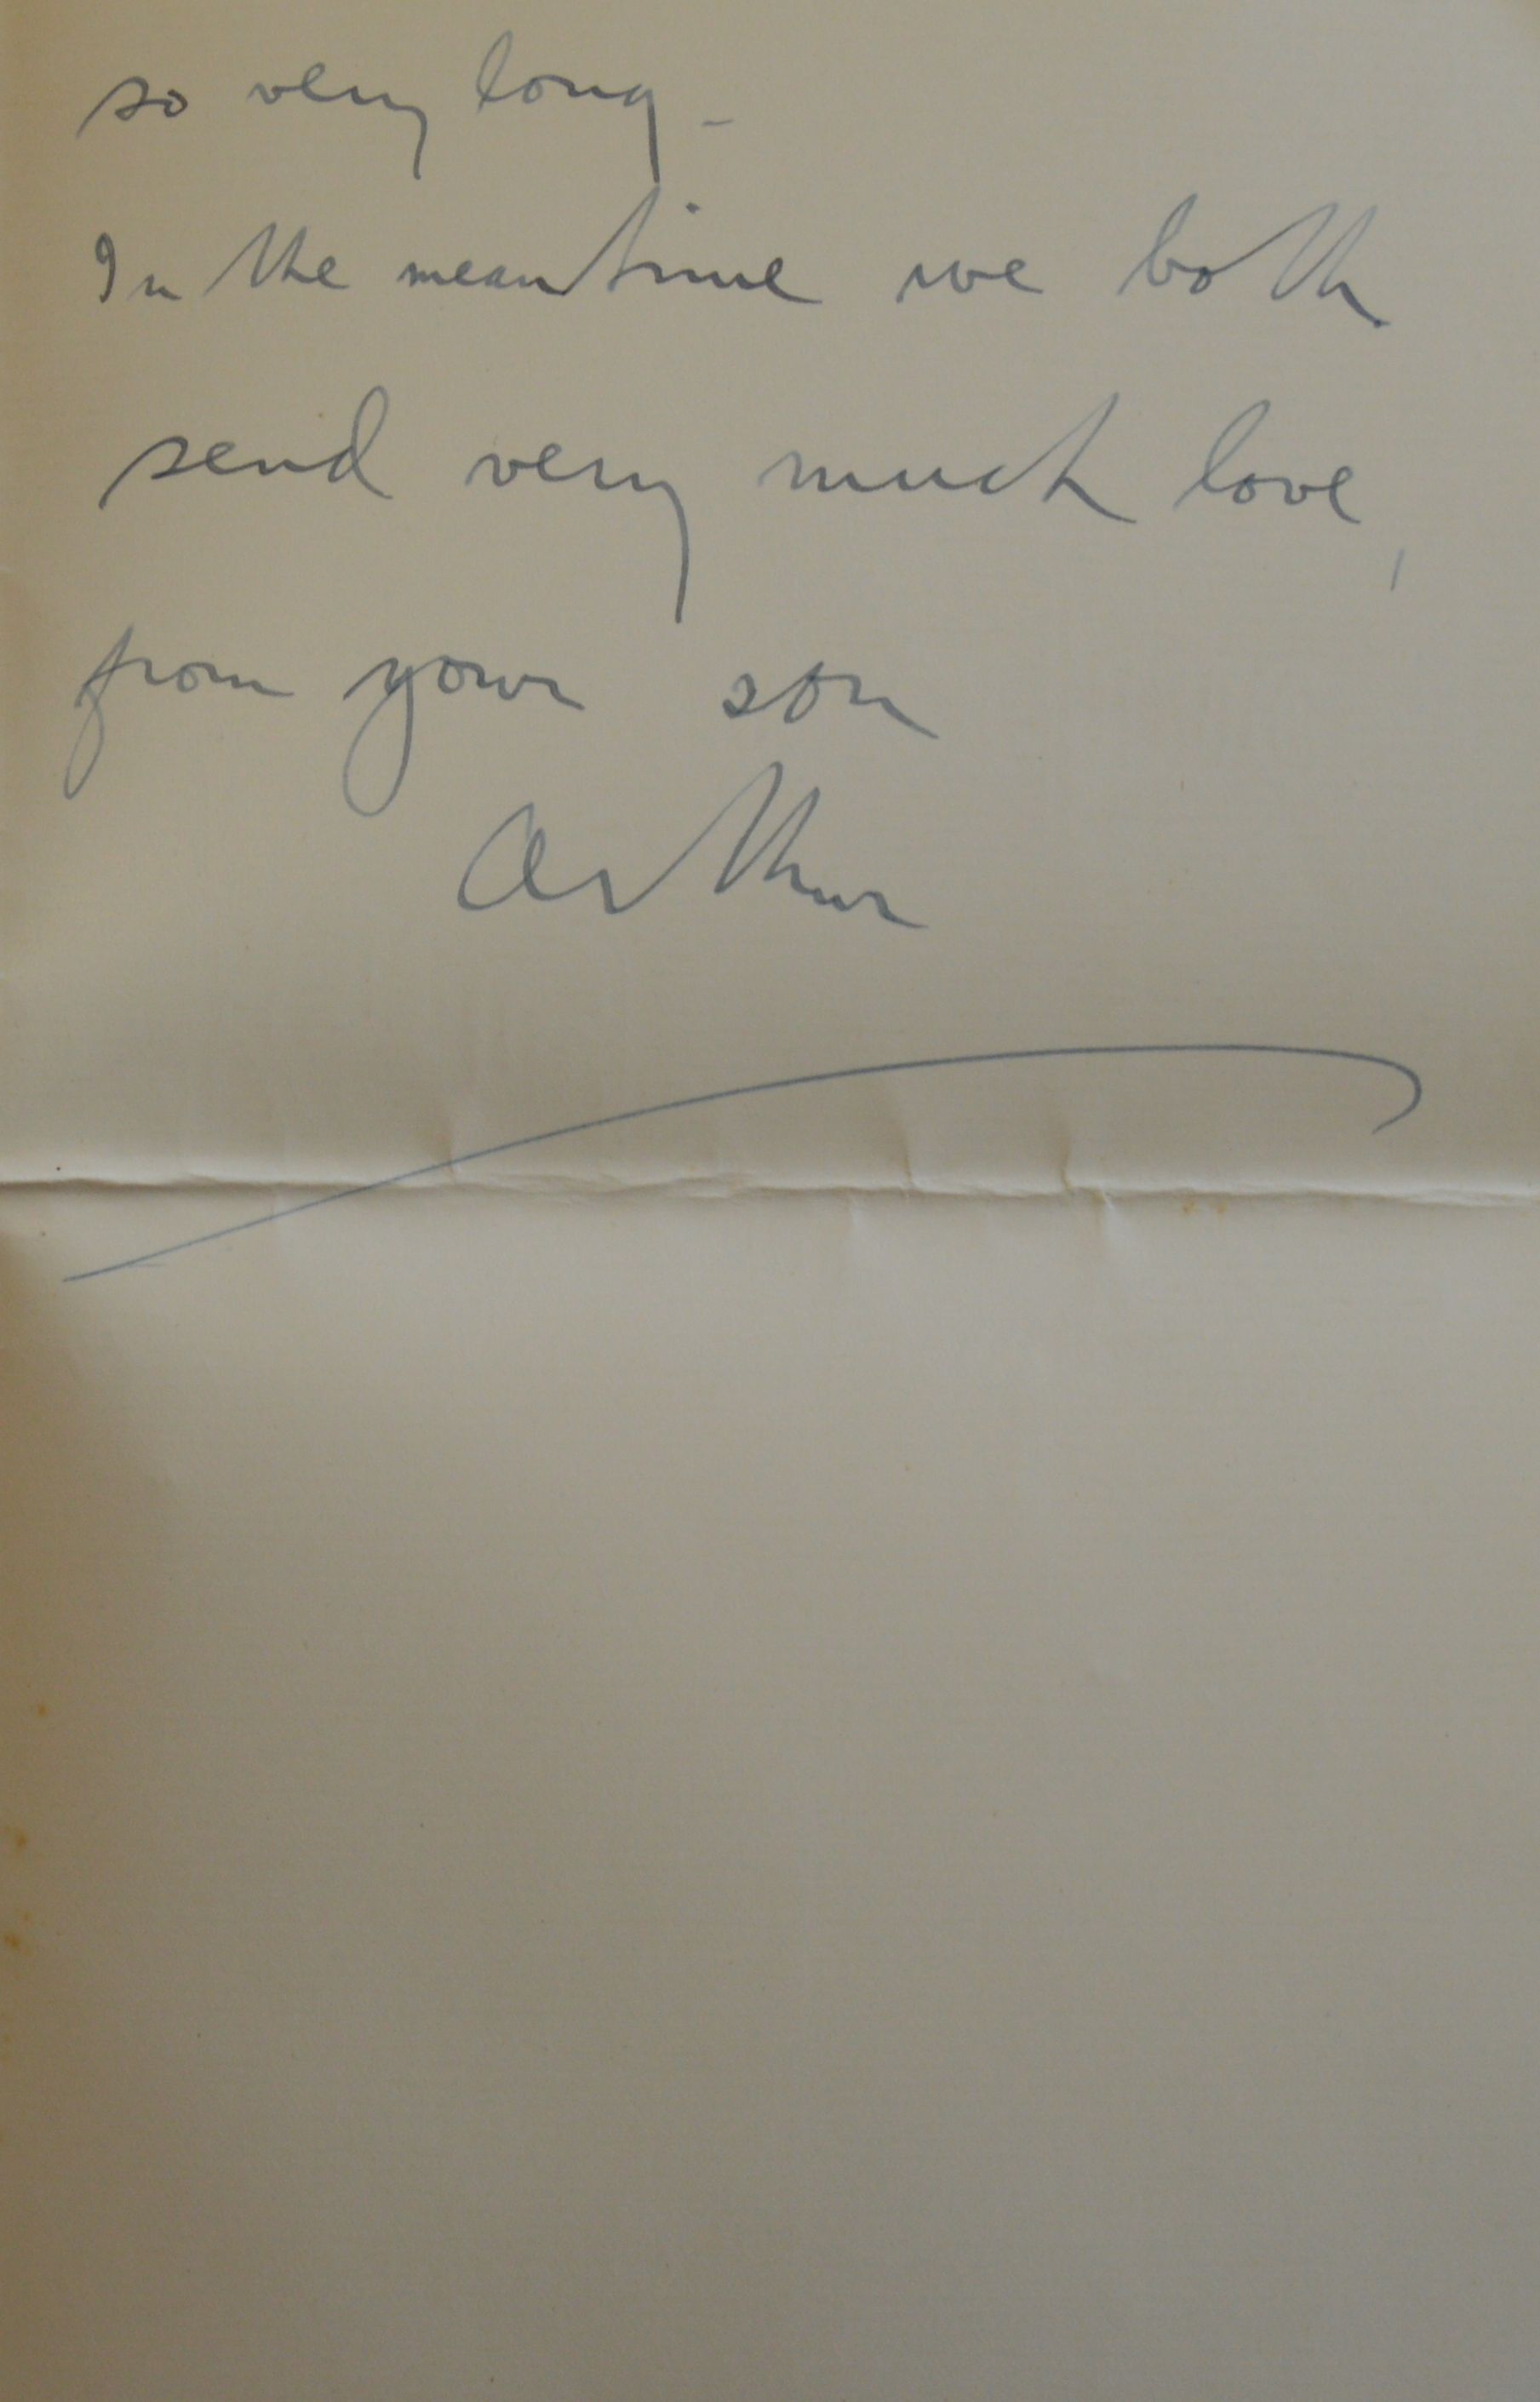 so very long -
In the meantime we both
send very much love,
from your son
Arthur